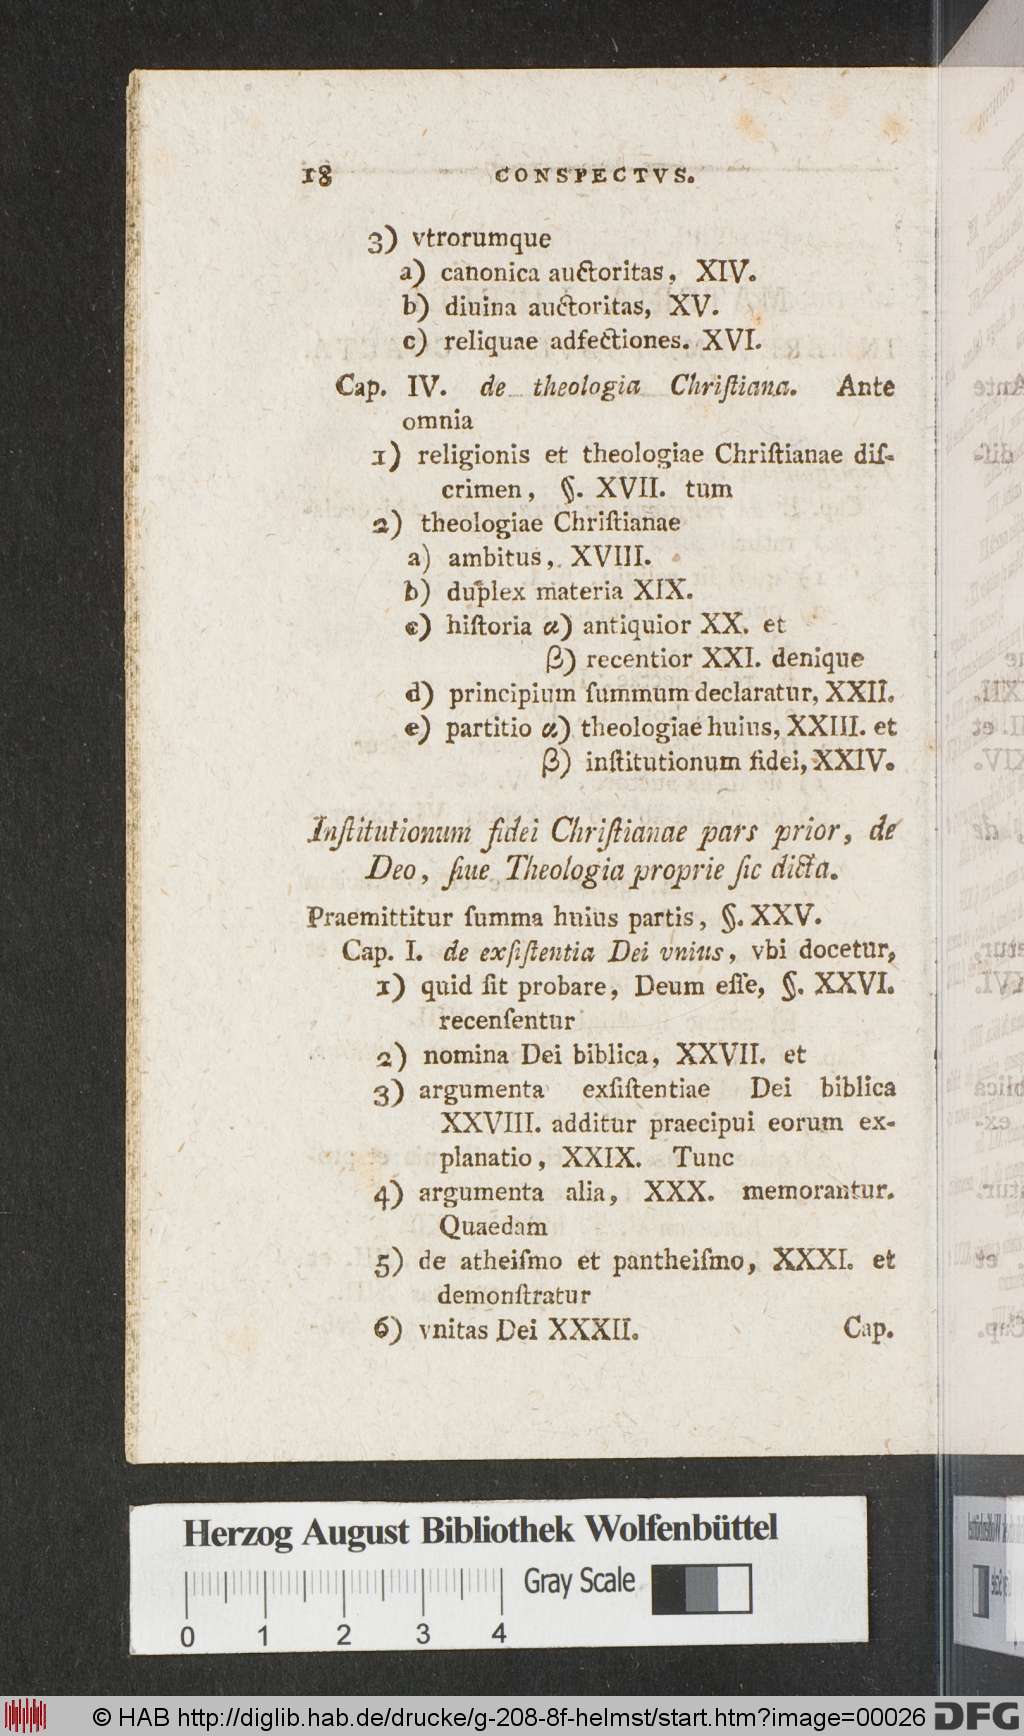 18 CONSPECTVS.
3) vtrorumque
a) canonica auctoritas, XIV.
b) diuina auctoritas, XV.
c) reliquae adfectiones. XVI.
Cap. IV. de theologia Chriſtiana. Ante
omnia
1) religionis et theologiae Chriſtianae diſ-
crimen, §. XVII. tum
2) theologiae Chriſtianae
a) ambitus, XVIII.
b) duplex materia XIX.
c) hiſtoria α) antiquior XX. et
β) recentior XXI. denique
d) principium ſummum declaratur, XXII.
e) partitio α) theologiae huius, XXIII. et
β) inſtitutionum fidei, XXIV.
Inſtitutionum fidei Chriſtianae pars prior, de
Deo, ſiue Theologia proprie ſic dicta.
Praemittitur ſumma huius partis, §. XXV.
Cap. I. de exſiſtentia Dei vnius, vbi docetur,
1) quid ſit probare, Deum eſſe, §. XXVI.
recenſentur
2) nomina Dei biblica, XXVII. et
3) argumenta exſiſtentiae Dei biblica
XXVIII. additur praecipui eorum ex-
planatio, XXIX. Tunc
4) argumenta alia, XXX. memorantur.
Quaedam
5) de atheiſmo et pantheiſmo, XXXI. et
demonſtratur
6) vnitas Dei XXXII. Cap.
Herzog August Bibliothek Wolfenbüttel
Gray Scale
0 1 2 3 4
© HAB http://diglib.hab.de/drucke/g-208-8f-helmst/start.htm?image=00026 DFG